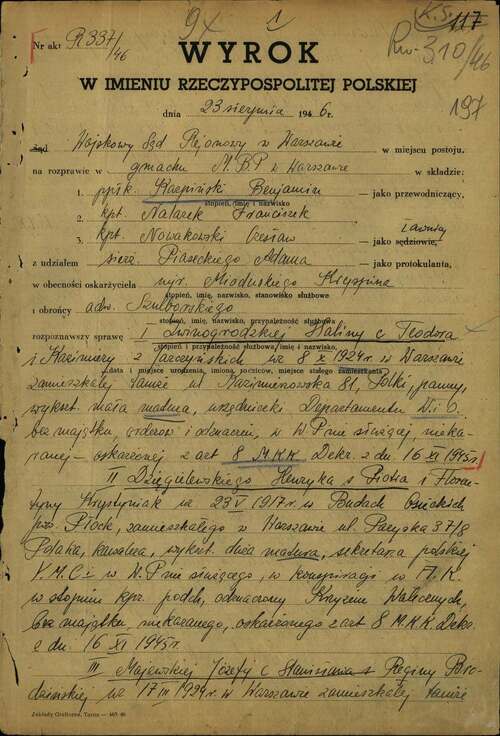 9x 1 K.S. 117
Nr akt R 337/46
Rw. 310/46
197
WYROK
W IMIENIU RZECZYPOSPOLITEJ POLSKIEJ
dnia 23 sierpnia 1946 r.
Sąd Wojskowy Sąd Rejonowy w Warszawie w miejscu postoju,
na rozprawie w gmachu M.B.P w Warszawie w składzie:
1. ppłk. Karpiński Benjamin — jako przewodniczący,
stopień, imię i nazwisko
2. kpt. Natarek Franciszek
3. kpt. Nowakowski Czesław — jako sędziowie, Ławnicy
z udziałem sierż. Piaseckiego Adama — jako protokulanta,
w obecności oskarżyciela mjr. Mioduskiego Kryspina
stopień, imię, nazwisko, stanowisko służbowe
i obrońcy adw. Szulborskiego
stopień, imię, nazwisko, przynależność służbowa
rozpoznawszy sprawę I Dwinogrodzkiej Haliny c Teodora
stopień i przynależność służbowa / imię i nazwisko,
i Kazimiery z Jarczyńskich ur 8 X 1924 r. w Warszawie
data i miejsce urodzenia, imiona rodziców, miejsce stałego zamieszkania
zamieszkałej tamże ul Kazimierowska 81, Polki, panny,
wykszt. mała matura, urzędniczki Departamentu W. i O.
bez majątku, orderów i odznaczeń, w W.P nie służącej, nieka-
ranej – oskarżonej z art 8 M.K.K Dekr. z dn. 16 XI 1945 r.
II Dzięgielewskiego Henryka s Piotra i Flore-
tyny Krystyniak ur 23 V 1917 r. w Budach Osieckich
pow. Płock, zamieszkałego w Warszawie ul. 37/8
Polaka, kawalera, wykszt. duża matura, sekretarza polskiej
Y.M.C.i w W.P nie służącego, w konspiracji w A.K.
w stopniu kpr. podch, odznaczony Krzyżem Walecznych,
bez majątku, niekaranego, oskarżonego z art 8 M.K.K Dekr.
z dn. 16 XI 1945 r.
III Majewskiej Józefy c Stanisława i Reginy Bro-
dzińskiej ur 17 III 1924 r. w Warszawie zamieszkałej tamże
Zakłady Graficzne, Tarnx — 465 46